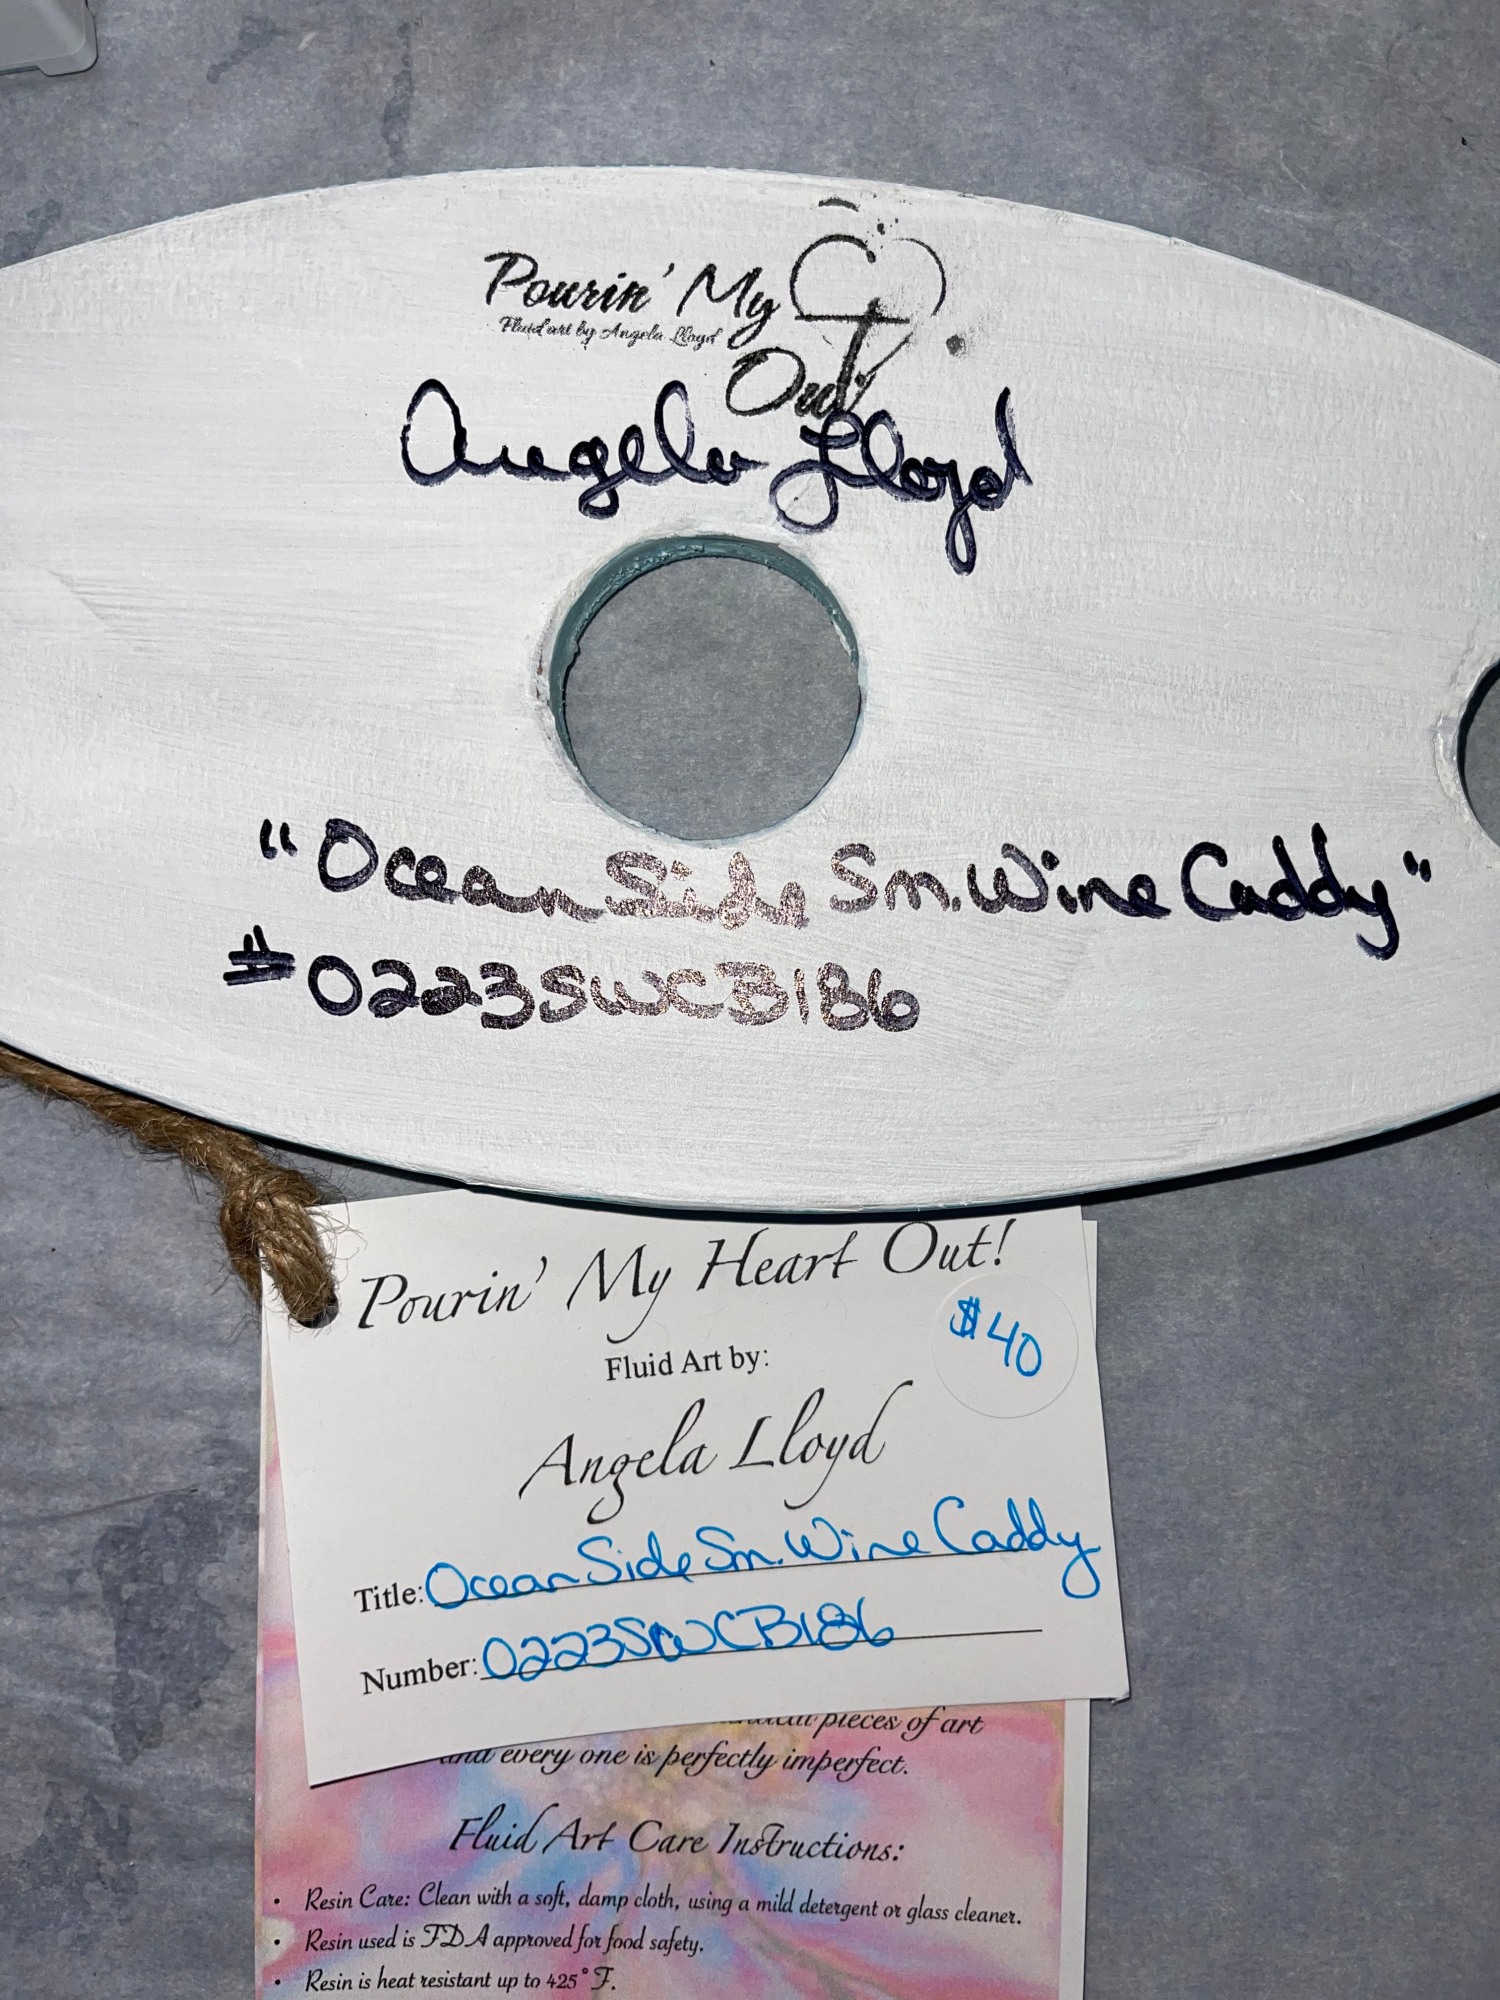 Pourin' My
Fluid art by Angela Lloyd
Out!
Angela Lloyd
"Ocean Side Sm. Wine Caddy"
#0223SWCB186
Pourin' My Heart Out!
$40
Fluid Art by:
Angela Lloyd
Title: Ocean Side Sm. Wine Caddy
Number: 0223SWCB186
pieces of art
and every one is perfectly imperfect.
Fluid Art Care Instructions:
• Resin Care: Clean with a soft, damp cloth, using a mild detergent or glass cleaner.
• Resin used is FDA approved for food safety.
• Resin is heat resistant up to 425° F.